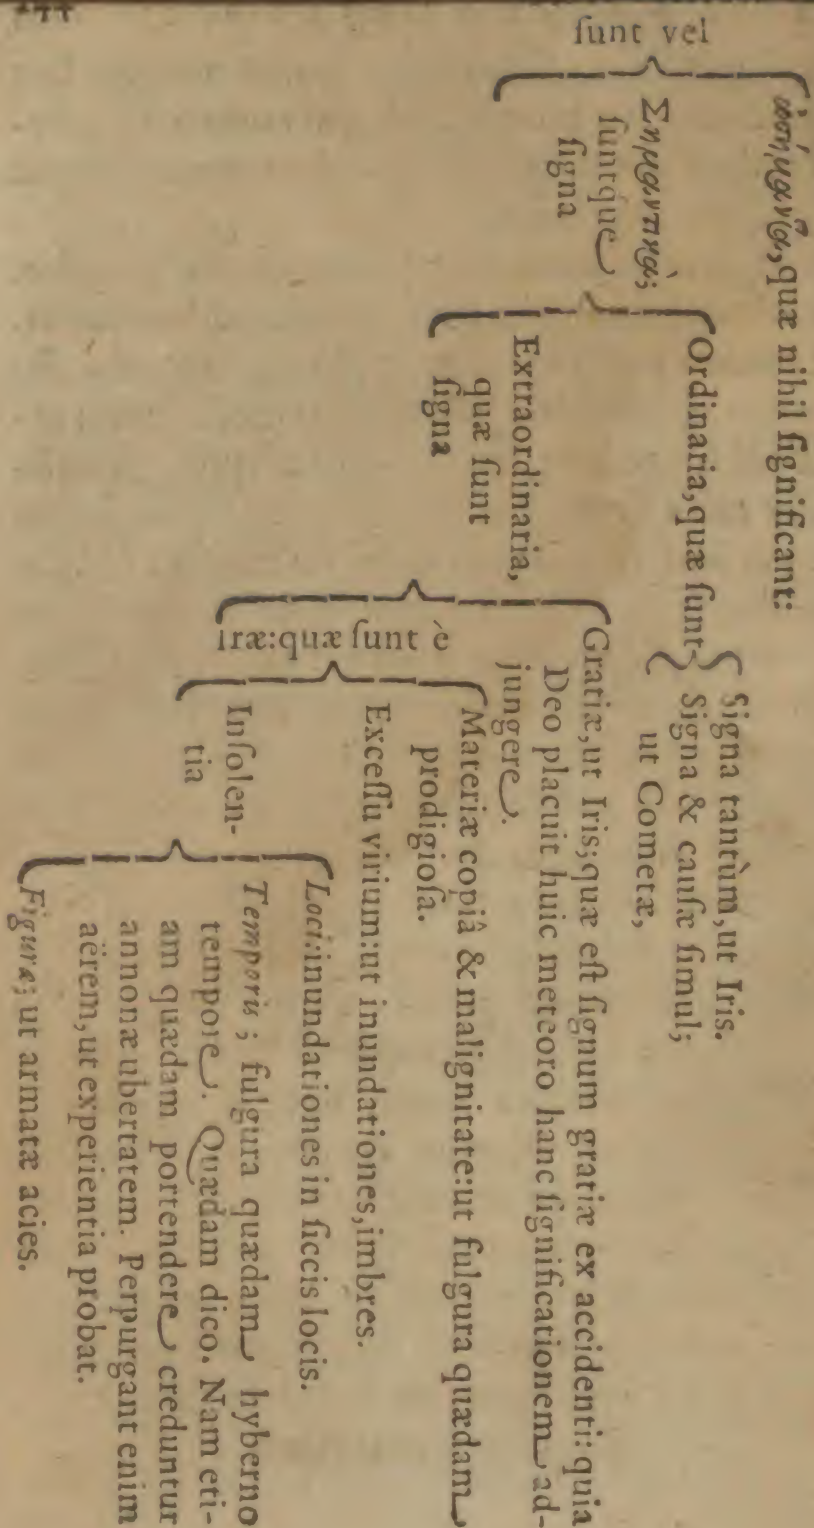 ſunt vel
ἀσήμαν͂α, quæ nihil ſignificant:
Σημαντικὰ;
ſuntque
ſigna
Ordinaria, quæ ſunt
Signa tantùm, ut Iris.
Signa & cauſæ ſimul;
ut Cometæ,
Extraordinaria,
quæ ſunt
ſigna
Gratiæ, ut Iris; quæ eſt ſignum gratiæ ex accidenti: quia
Deo placuit huic meteoro hanc ſignificationem ad-
jungere.
iræ: quæ ſunt è
Materiæ copiâ & malignitate: ut fulgura quædam
prodigioſa.
Exceſſu virium: ut inundationes, imbres.
Inſolen-
tia
Loci: inundationes in ſiccis locis.
Temporis; fulgura quædam hyberno
tempore. Quædam dico. Nam eti-
am quædam portendere creduntur
annonæ ubertatem. Perpurgant enim
aërem, ut experientia probat.
Figuræ; ut armatæ acies.